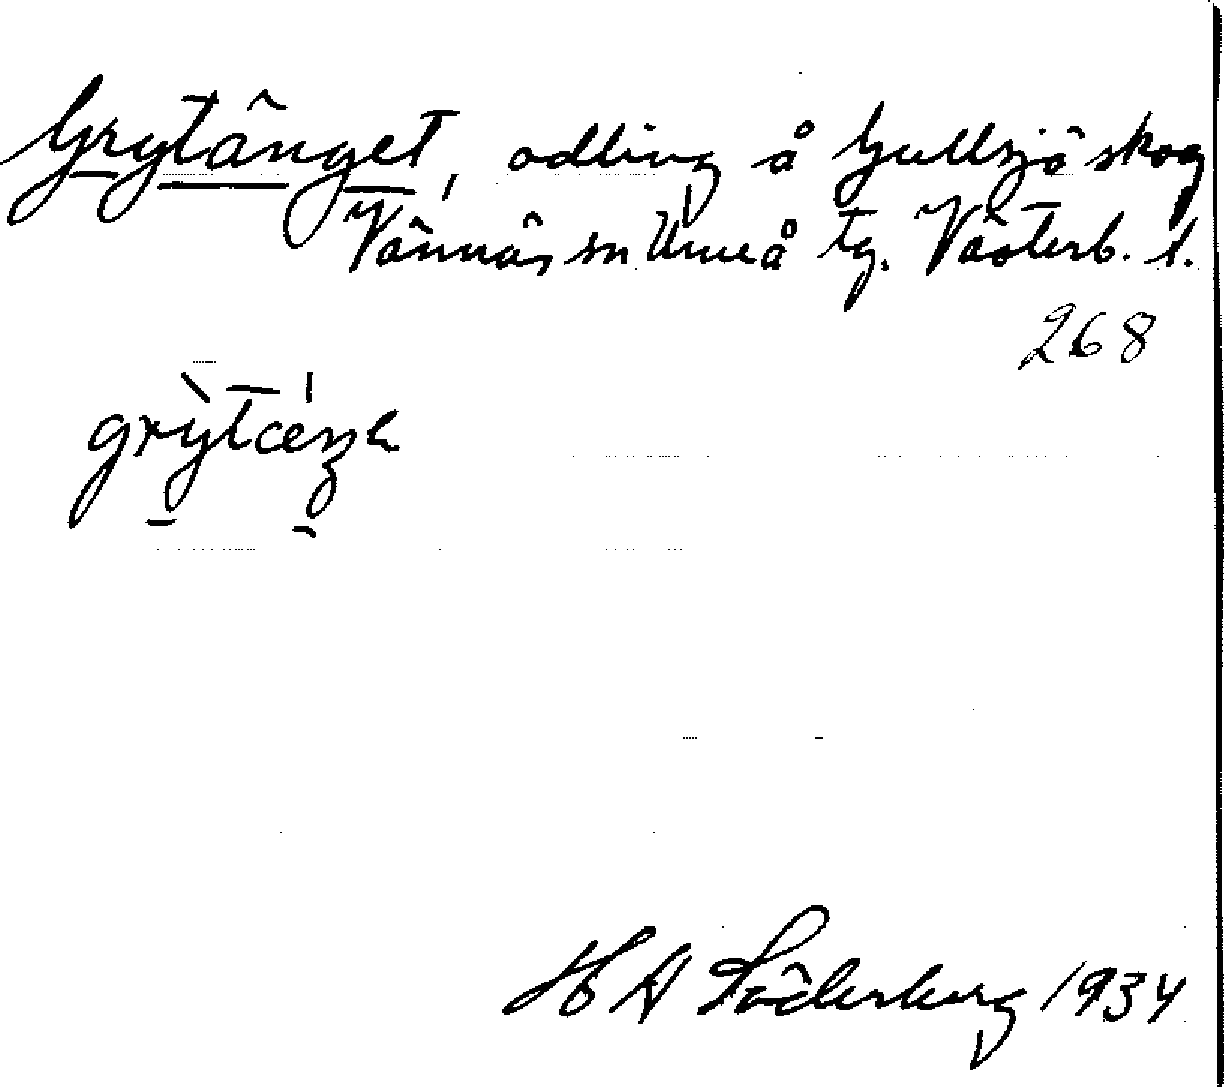 Grytänget, odling å Gullsjö skog
Vännäs sn Umeå tg. Västerb. l.
268
grỳtæŋe
H A Söderberg 1934